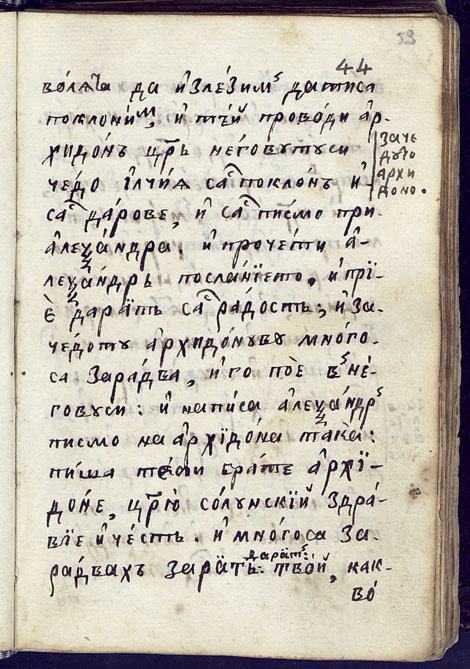 53
44
во́ляꙋ̀а да и҆зле́зимъ да ти са
поклони́м, и҆ тѣ́й прово́ди а҆р-
хидо́нъ цр҃ь не́говутуси
че́до и҆лчи́я са поклонъ и҆
са да́рове, и҆ са писмо при
а҆леѯа́ндра. и҆ прочети а҆-
леѯа́ндръ посла́нїето, и҆ прї-
ѐ дара̑тъ са ра́достъ, и҆ за
че́доту а҆рхидо́нуву мно́го
са зара́два, и҆ го по́е в не́-
говуси: и҆ написа а҆леѯа́ндръ
писмо на а҆рхїдо́на така:
пи́ша ти брате а҆рхї-
до́не, цр҃ю со́лунскїй здра́-
вїе и҆ че́сть. и҆ мно́госа за
ра́двахъ за дара̑тъ твой, как-
во́
за че
дуто
архи
доно.